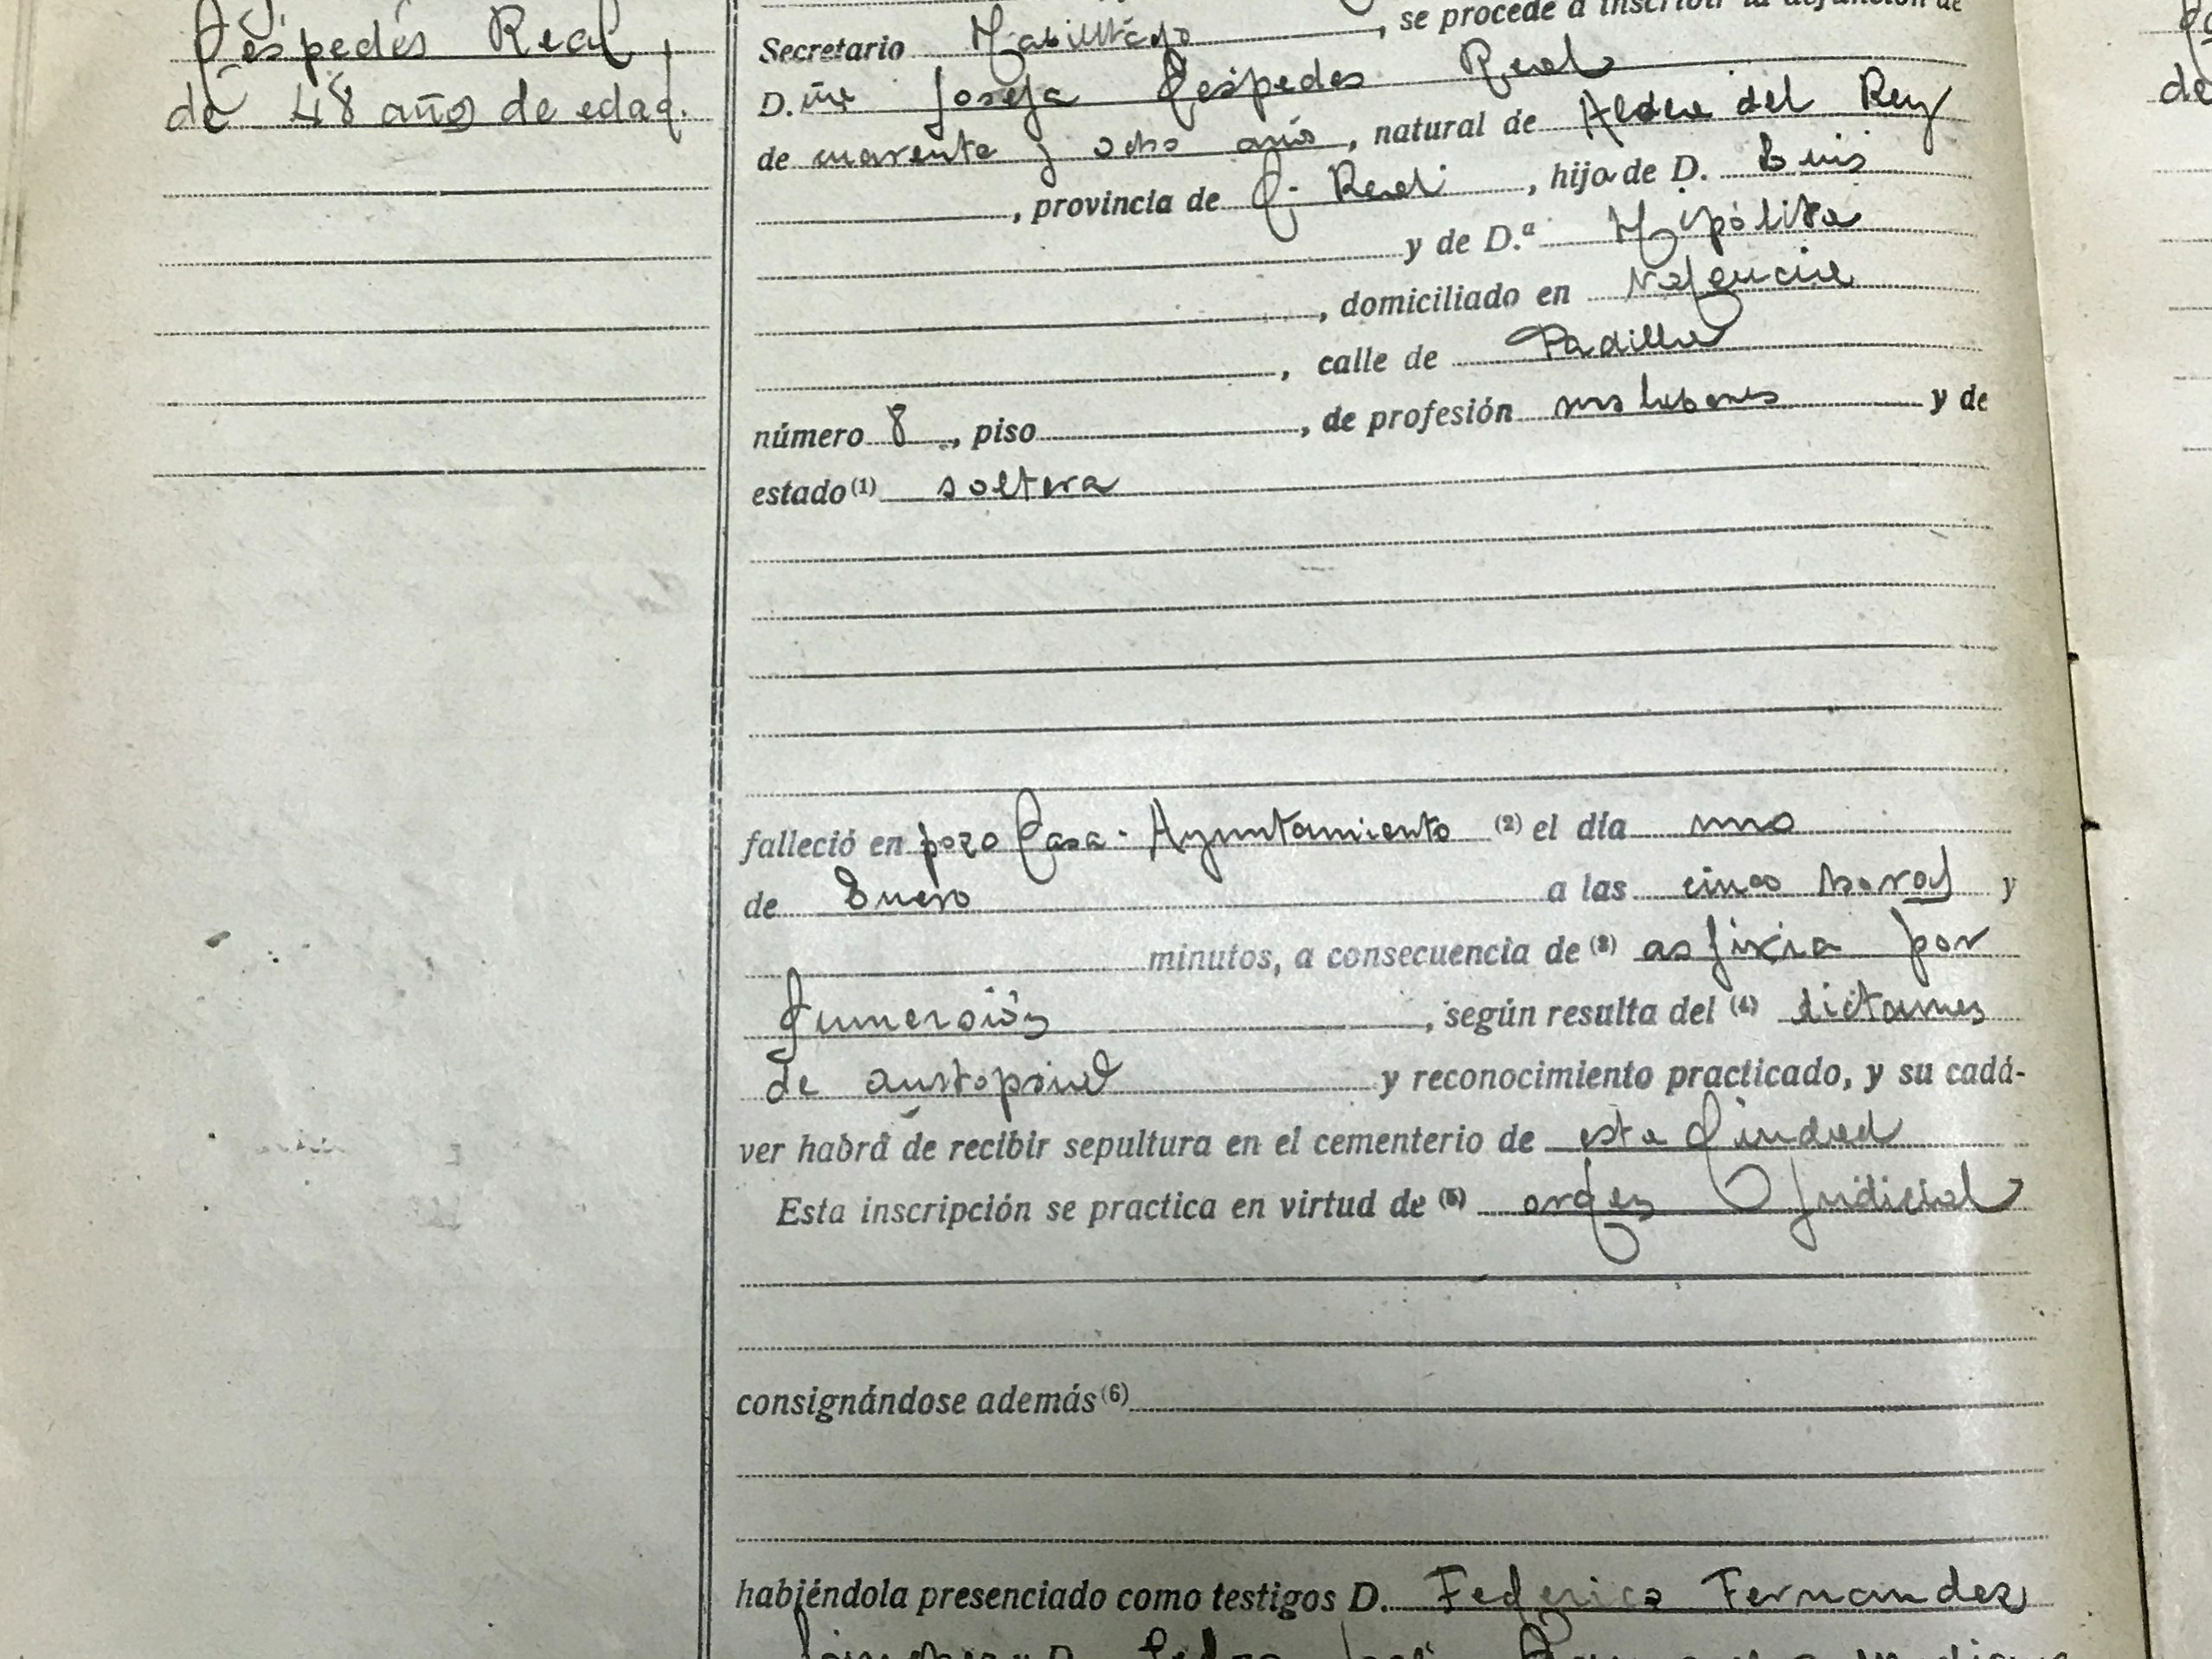 Céspedes Real,
de 48 años de edad.
Secretario Habilitado, se procede a inscribir la defunción de
D.ña Josefa Céspedes Real
de cuarenta y ocho años, natural de Aldea del Rey
, provincia de C. Real, hijo de D. Luis
y de D.ª Hipólita
, domiciliado en
, calle de Padilla
número 8, piso , de profesión sus labores y de
estado (1) soltera
falleció en pozo Casa-Ayuntamiento (2) el día uno
de Enero a las cinco horas y
minutos, a consecuencia de (3) asfixia por
inmersión, según resulta del (4) dictamen
de autopsia y reconocimiento practicado, y su cadá-
ver habrá de recibir sepultura en el cementerio de esta Ciudad
Esta inscripción se practica en virtud de (5) orden Judicial
consignándose además (6)
habiéndola presenciado como testigos D. Federico Fernandez
D. Pedro José